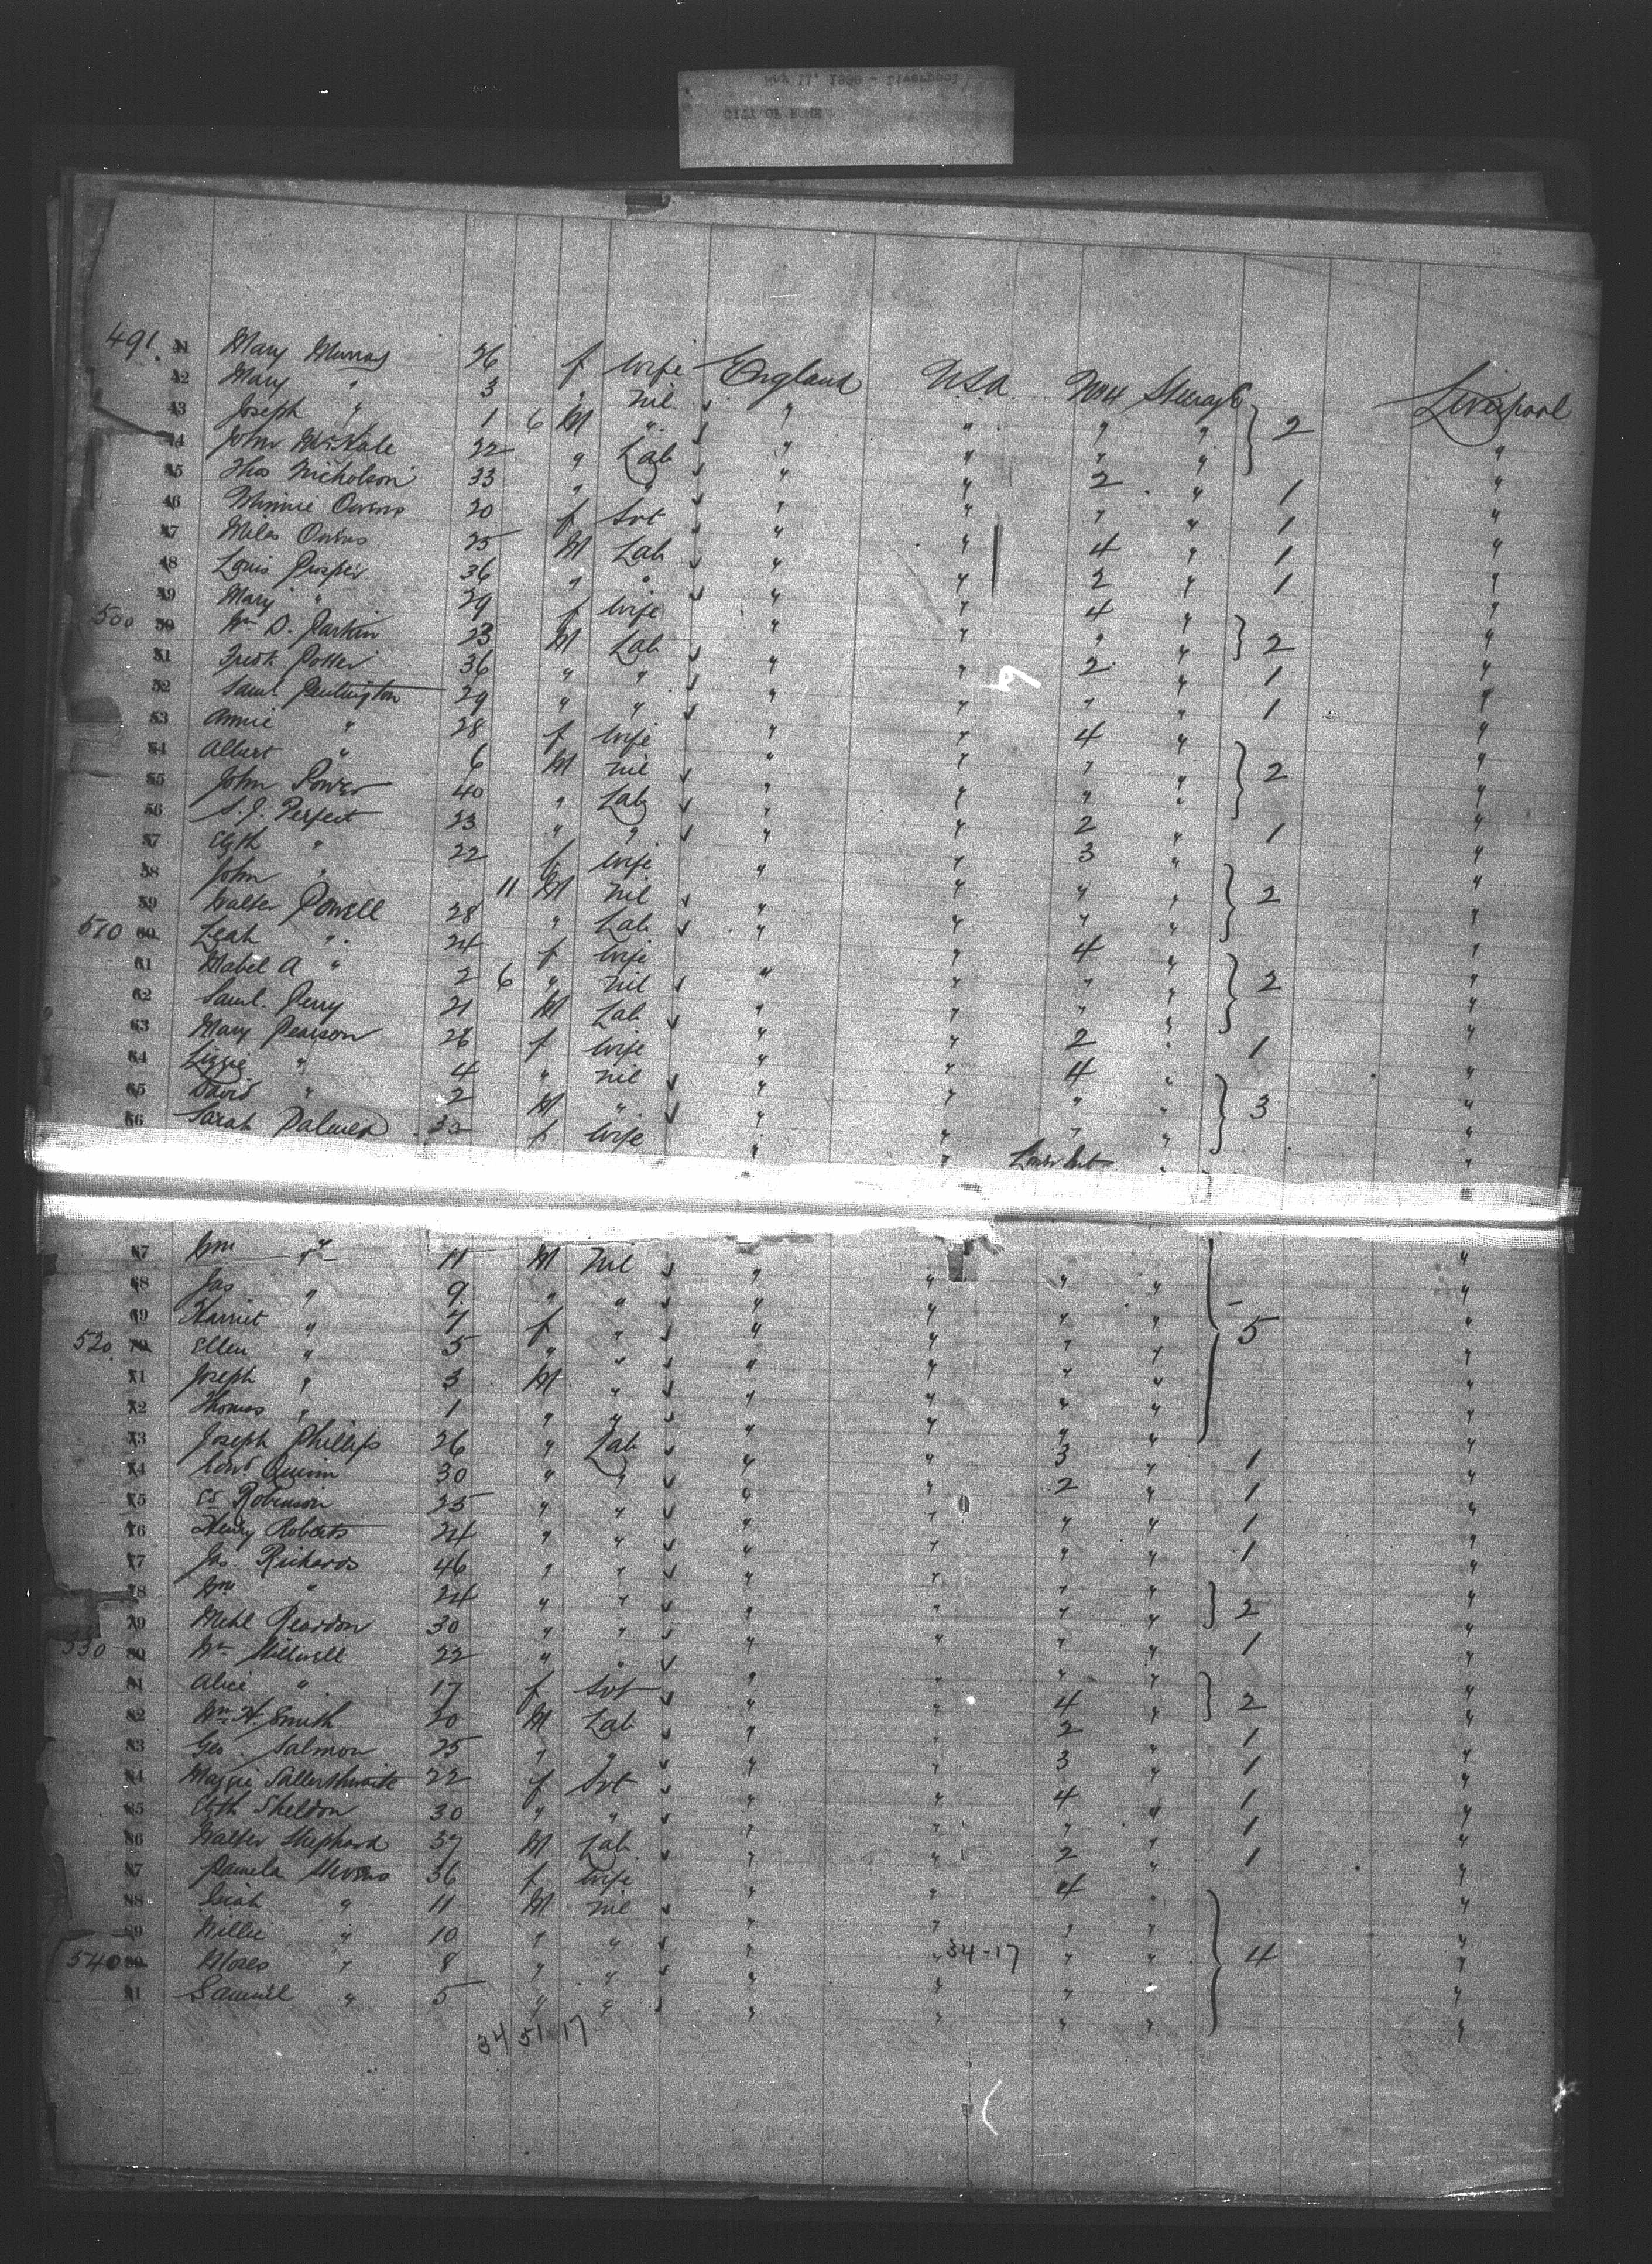 CITY OF ROME
May 11, 1888 - Liverpool
491. 41 Mary Murray 26 f Wife England U.S.A. No 4 Steerage Liverpool
42 Mary " 3 " nil " " " " } 2 "
43 Joseph " 1 6 M " " " " " "
44 John McHale 22 " Lab " " 2 " 1 "
45 Thos Nicholson 33 " " " " " " 1 "
46 Minnie Owens 20 f Svt " " 4 " 1 "
47 Miles Owens 25 M Lab " " 2 " 1 "
48 Louis Prosper 36 " " " " 4 " "
49 Mary " 29 f Wife " " " " } 2 "
500 50 Wm D. Parkin 23 M Lab " " 2 " 1 "
51 Fredk Potter 36 " " " " " " 1 "
52 Saml. Penlington 29 " " " " 4 " "
53 Annie " 28 f Wife " " " " } 2 "
54 Albert " 6 M nil " " " " "
55 John Power 40 " Lab " " 2 " 1 "
56 S. J. Perfect 23 " " " " 3 " "
57 Elizth " 22 f Wife " " " " } 2 "
58 John " 11 M nil " " " " "
59 Walter Powell 28 " Lab " " 4 " "
510 60 Leah " 24 f Wife " " " " } 2 "
61 Mabel A " 2 6 " nil " " " " "
62 Saml. Perry 21 M Lab " " 2 " 1 "
63 Mary Pearson 26 f Wife " " 4 " "
64 Lizzie " 4 " nil " " " " } 3 "
65 David " 2 M " " " " " "
66 Sarah Palmer 33 f Wife " " "
67 Wm " 11 M Nil " " " " "
68 Jas " 9 " " " " " " "
69 Harriet " 7 f " " " " " } 5 "
520 70 Ellen " 5 " " " " " " "
71 Joseph " 3 M " " " " " "
72 Thomas " 1 " " " " " " "
73 Joseph Phillips 26 " Lab " " 3 " 1 "
74 Edwd Quinn 30 " " " " 2 " 1 "
75 Ed Robinson 25 " " " " " " 1 "
76 Henry Roberts 24 " " " " " " 1 "
77 Jas. Richards 46 " " " " " " "
78 Wm " 24 " " " " " " } 2 "
79 Mchl Reardon 30 " " " " " " 1 "
530 80 Wm Stillwell 22 " " " " " " "
81 Alice " 17 f Svt " " 4 " } 2 "
82 Wm H. Smith 20 M Lab " " 2 " 1 "
83 Geo. Salmon 25 " " " " 3 " 1 "
84 Maggie Satterthwaite 22 f Svt " " 4 " 1 "
85 Elizth Sheldon 30 " " " " " " 1 "
86 Walter Shephard 37 M Lab " " 2 " 1 "
87 Pamela Stevens 36 f Wife " " 4 " "
88 Isiah " 11 M nil " " " " "
89 Willie " 10 " " " " " " "
540 90 Moses " 8 " " " " 34-17 " " } 4 "
91 Samuel " 5 " " " " " " "
34 51 17